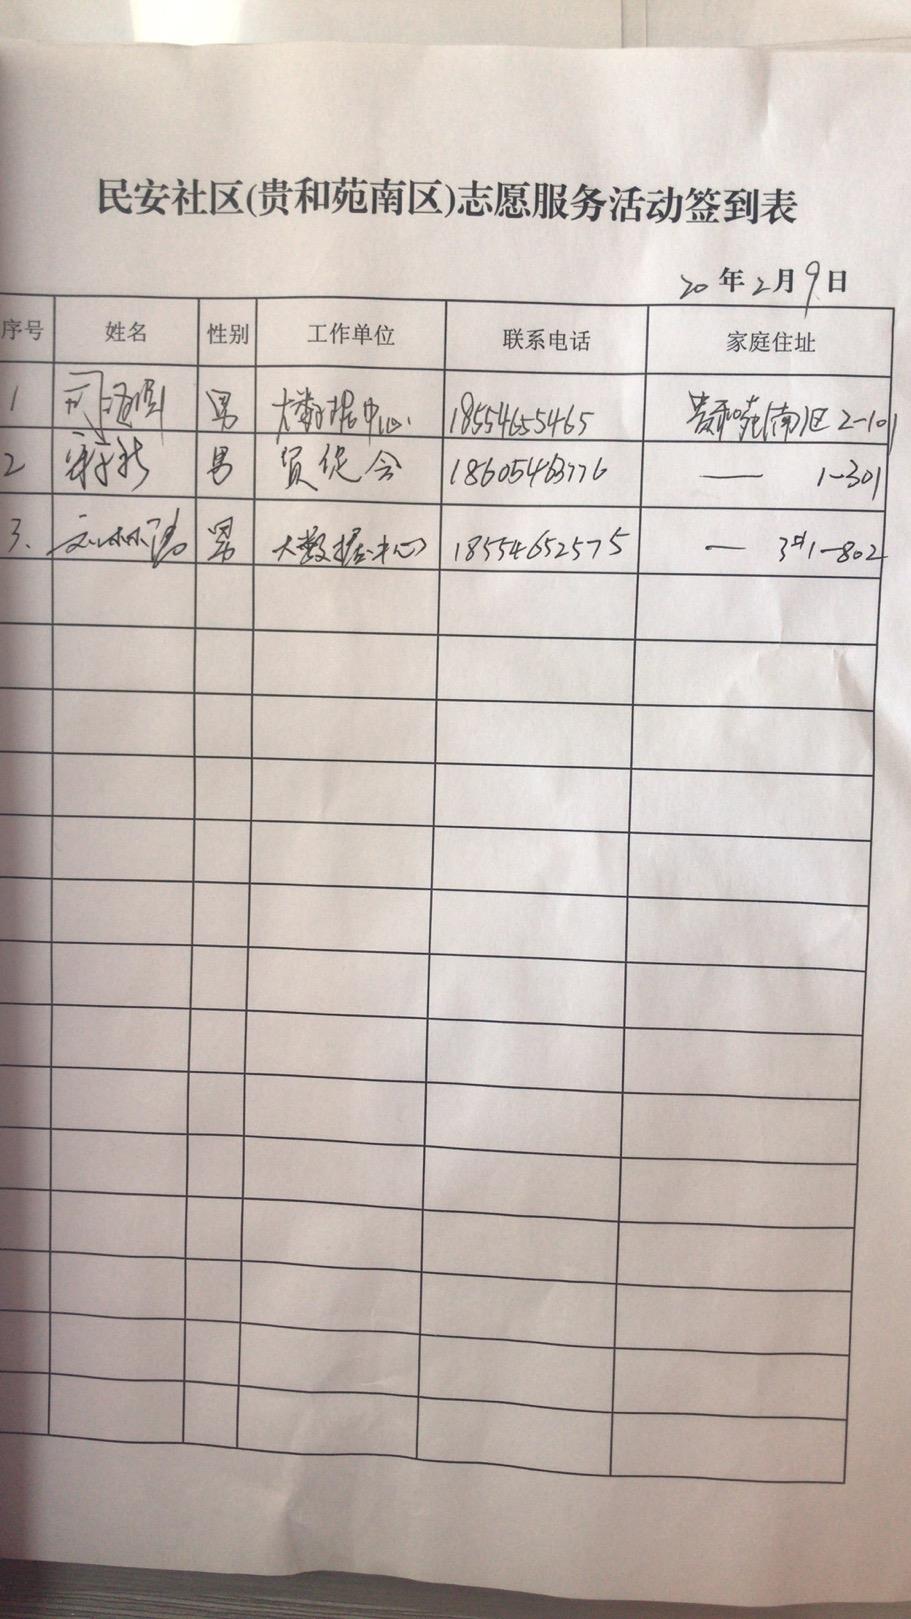 民安社区(贵和苑南区)志愿服务活动签到表
20年2月9日
序号 姓名 性别 工作单位 联系电话 家庭住址
1 男 大数据中心 18554655465 贵和苑(南)区 2-101
2 男 贸促会 18605463776 — 1-301
3. 男 大数据中心 18554652575 — 3#1-802